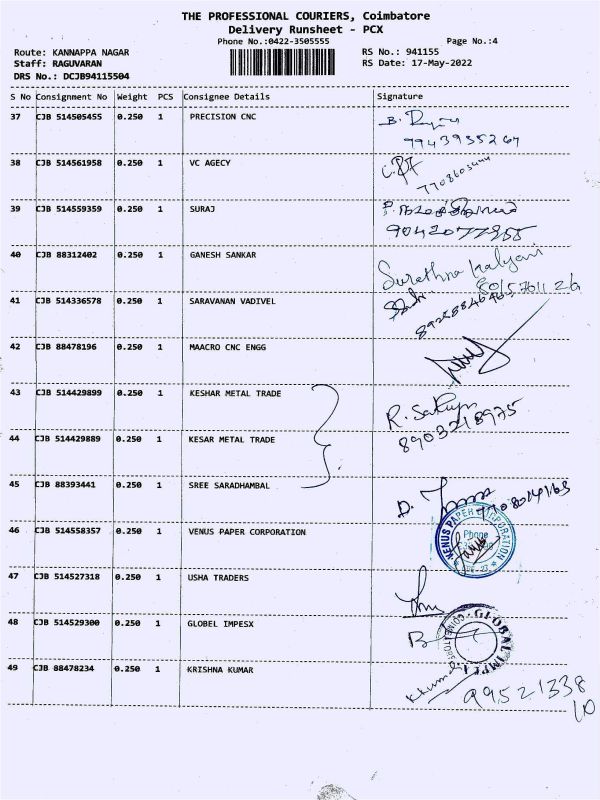 THE PROFESSIONAL COURIERS, Coimbatore
Delivery Runsheet - PCX
Phone No.:0422-3505555
Page No.:4
Route: KANNAPPA NAGAR
RS No.: 941155
Staff: RAGUVARAN
RS Date: 17-May-2022
DRS No.: DCJB94115504
S No Consignment No Weight PCS Consignee Details Signature
37 CJB 514505455 0.250 1 PRECISION CNC
38 CJB 514561958 0.250 1 VC AGECY
39 CJB 514559359 0.250 1 SURAJ
9042077955
40 CJB 88312402 0.250 1 GANESH SANKAR
Kalyani
41 CJB 514336578 0.250 1 SARAVANAN VADIVEL
42 CJB 88478196 0.250 1 MAACRO CNC ENGG
43 CJB 514429899 0.250 1 KESHAR METAL TRADE
8903218975
44 CJB 514429889 0.250 1 KESAR METAL TRADE
45 CJB 88393441 0.250 1 SREE SARADHAMBAL
D.
46 CJB 514558357 0.250 1 VENUS PAPER CORPORATION
VENUS PAPER CORPORATION
Phone
47 CJB 514527318 0.250 1 USHA TRADERS
48 CJB 514529300 0.250 1 GLOBEL IMPESX
GLOBAL
49 CJB 88478234 0.250 1 KRISHNA KUMAR
99521338
10